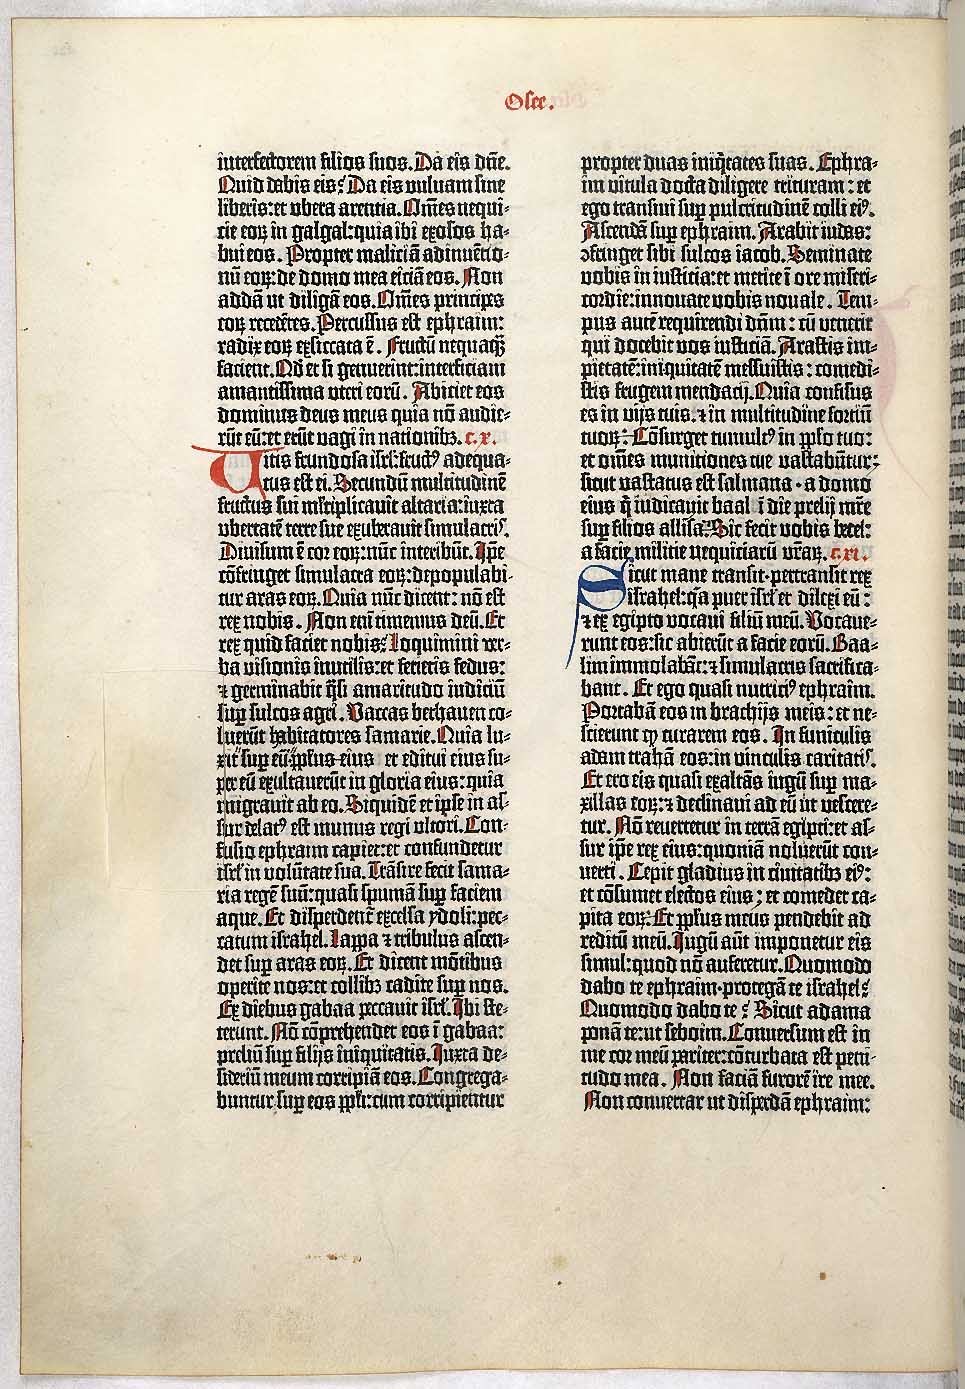 Osee.
interfectorem filios suos. Da eis dñe.
Quid dabis eis? Da eis vuluam sine
liberis: et vbera arentia. Om̃es nequi-
cie eoꝝ in galgal: quia ibi exosos ha-
bui eos. Propter maliciā adinuētio-
nū eoꝝ: de domo mea eiciā eos. Non
addā ut diligā eos. Om̃es principes
eoꝝ recedētes. Percussus est ephraim:
radix eoꝝ exsiccata ē. Fructū nequaqꝫ
facient. Qd̓ et si genuerint: interficiam
amantissima vteri eorū. Abiciet eos
dominus deus meus quia nō audie-
rūt eū: et erūt vagi in nationibꝫ. c. x.
Vitis frundosa isrl̓: fructꝰ adequa-
tus est ei. Secundū multitudinē
fructus sui ml̓tiplicauit altaria: iuxta
vbertatē terre sue exuberauit simulacrꝭ.
Diuisum ē cor eoꝝ: nūc interibūt. Ip̄e
cōfringet simulacra eoꝝ: depopulabi-
tur aras eoꝝ. Quia nūc dicent: nō est
rex nobis. Non eni timemus deū. Et
rex quid faciet nobis? Loquimini ver-
ba visionis inutilis: et ferietis fedus:
⁊ germinabit q̄si amaritudo iudiciū
suꝑ sulcos agri. Vaccas bethauen co-
luerūt habitatores samarie. Quia lu-
xit suꝑ eū ppl̓us eius et editui eius su-
per eū exultauerūt in gloria eius: quia
migrauit ab eo. Siquidē et ipse in as-
sur delatꝰ est munus regi vltori. Con-
fusio ephraim capiet: et confundetur
isrl̓ in volūtate sua. Trāsire fecit sama-
ria regē suū: quasi spumā suꝑ faciem
aque. Et disperdent̃ excelsa ydoli: pec-
catum israhel. Lappa ⁊ tribulus ascen-
det suꝑ aras eoꝝ. Et dicent mōtibus
operite nos: et collibꝫ cadite suꝑ nos.
Ex diebus gabaa peccauit isrl̓. Ibi ste-
terunt. Nō cōprehendet eos ī gabaa:
preliū suꝑ filijs iniquitatis. Iuxta de-
sideriū meum corripiā eos. Congrega-
buntur suꝑ eos ppl̓i: cum corripientur
propter duas iniq̇tates suas. Ephra-
im vitula docta diligere trituram: et
ego transiui suꝑ pulcritudinē colli eiꝰ.
Ascendā suꝑ ephraim. Arabit iudas:
ↄfringet sibi sulcos iacob. Seminate
vobis in iusticia: et metite ī ore miseri-
cordie: innouate vobis nouale. Tem-
pus autē requirendi dn̄m: cū venerit
qui docebit vos iusticiā. Arastis im-
pietatē: iniquitatē messuistis: comedi-
stis frugem mendacij. Quia confisus
es in vijs tuis. ⁊ in multitudine fortiū
tuoꝝ: Cōsurget tumultꝰ in pp̄lo tuo:
et om̄es munitiones tue vastabūtur:
sicut vastatus est salmana. a domo
eius q̇ iudicauit baal ī die prelij mr̄e
suꝑ filios allisa. Sic fecit vobis betel:
a facie militie nequiciarū vr̄aꝝ. c. xi.
Sicut mane transit. pertransit rex
israhel: q̇a puer isrl̓ et dilexi eū:
⁊ ex egipto vocaui filiū meū. Vocaue-
runt eos: sic abierūt a facie eorū. Baa-
lim immolabāt: ⁊ simulacris sacrifica-
bant. Et ego quasi nutriciꝰ ephraim.
Portabā eos in brachijs meis: et ne-
scierunt ꝙ curarem eos. In funiculis
adam trahā eos: in vinculis caritatꝭ.
Et ero eis quasi exaltās iugū suꝑ ma-
xillas eoꝝ: ⁊ declinaui ad eū ut vescere-
tur. Nō reuertetur in terrā egipti: et as-
sur ip̄e rex eius: quoniā noluerūt con-
uerti. Cepit gladius in ciuitatibꝫ eiꝰ:
et cōsumet electos eius; et comedet ca-
pita eoꝝ: Et pp̄lus meus pendebit ad
reditū meū. Iugū aūt imponetur eis
simul: quod nō auferetur. Quomodo
dabo te ephraim. protegā te israhel?
Quomodo dabo te? Sicut adama
ponā te: ut seboim. Conuersum est in
me cor meū pariter: cōturbata est peni-
tudo mea. Non faciā furorē ire mee.
Non conuertar ut disperdā ephraim: